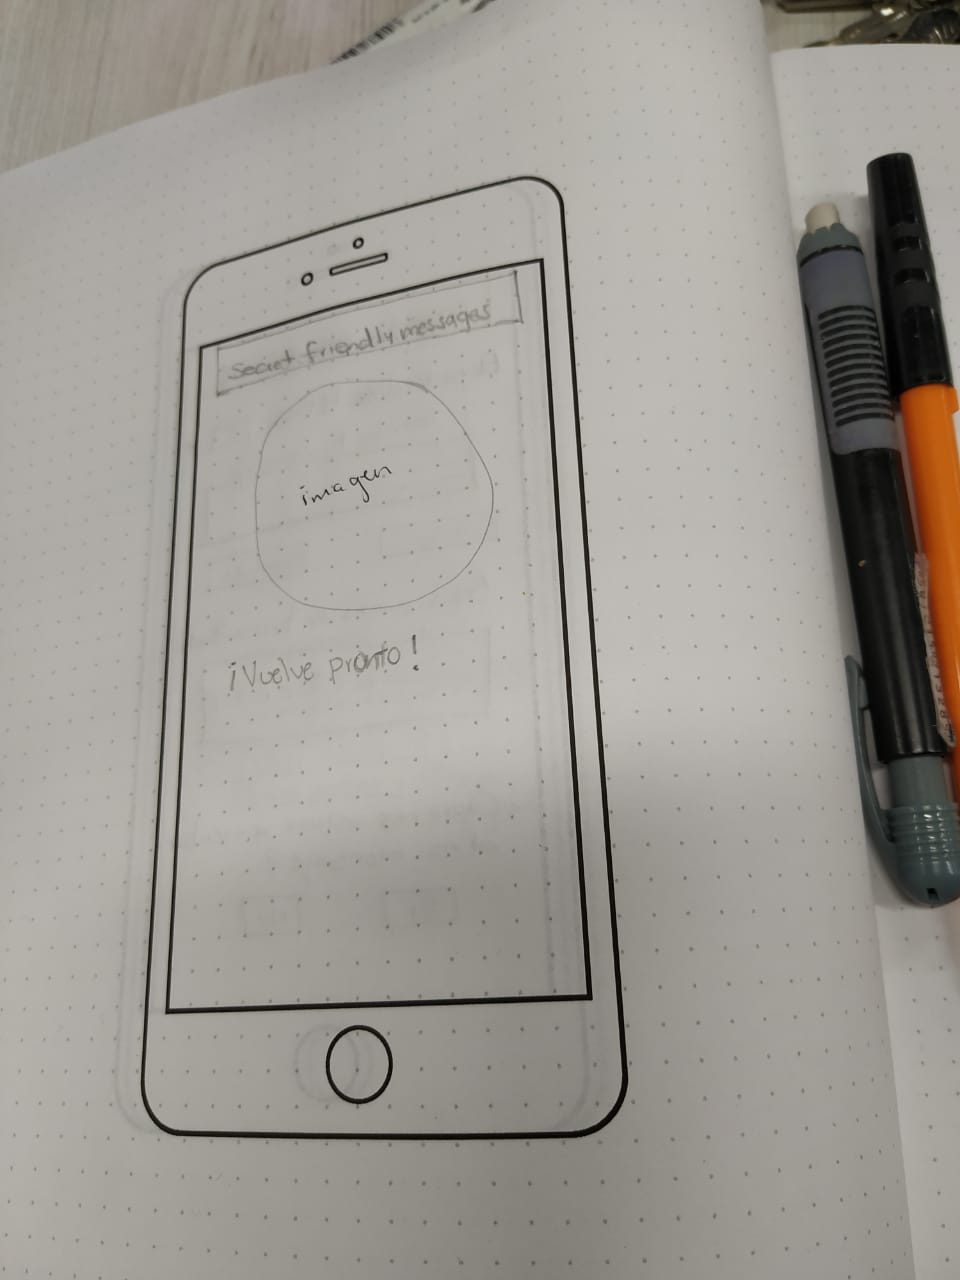 Secret friendly messages
imagen
¡Vuelve pronto!